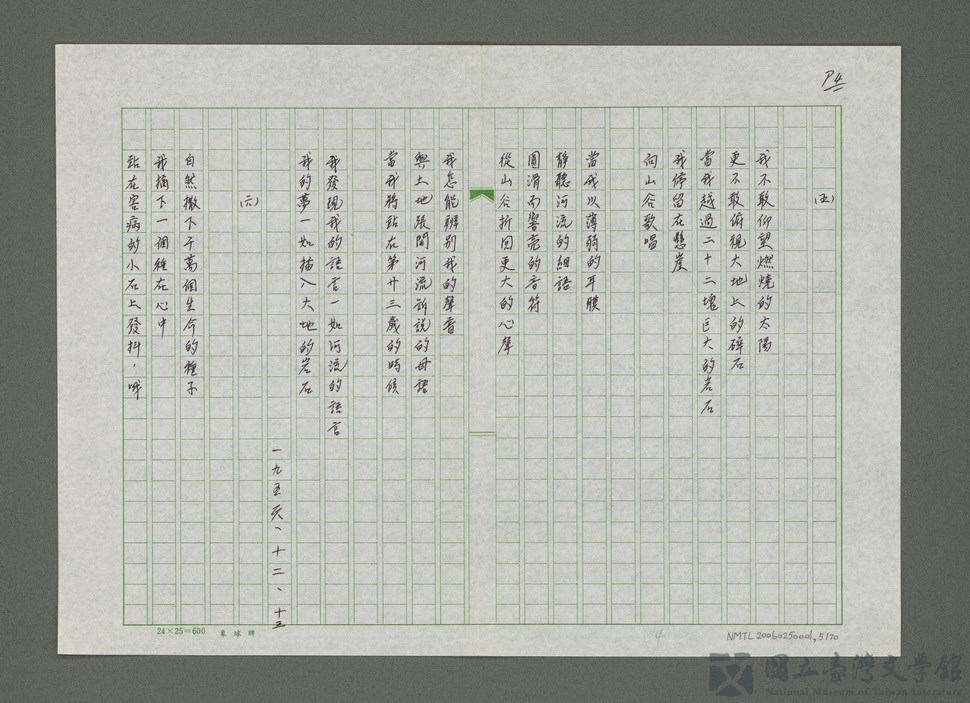 P4
(五)
我不敢仰望燃燒的太陽
更不敢俯視大地上的碎石
當我越過二十二塊巨大的岩石
我停留在懸崖
向山谷歌唱
當我以薄弱的耳膜
靜聽河流的細語
圓滑而響亮的音符
從山谷折回更大的心聲
我怎能辨别我的聲音
與土地張開河流訴說的母語
當我將站在第廿三歲的時候
我發現我的語言一如河流的語言
我的夢一如描入大地的岩石
一九五六、十二、十五
(六)
自然撒下千萬個生命的種子
我摘下一個種在心中
站在害病的小石上發抖，哦
24×25=600
4
NMTL20060250001,5/70
國立臺灣文學館
National Museum of Taiwan Literature